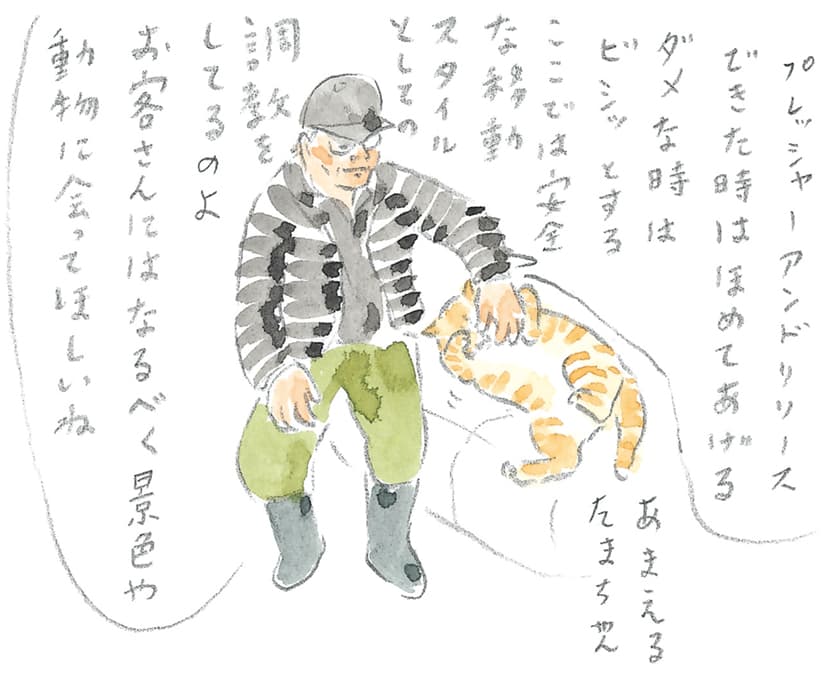 プレッシャーアンドリリース
できた時はほめてあげる
ダメな時は
ビシッとする
ここでは安全
な移動
スタイル
としての
調教を
してるのよ
お客さんにはなるべく景色や
動物に会ってほしいね
あまえる
たまちゃん